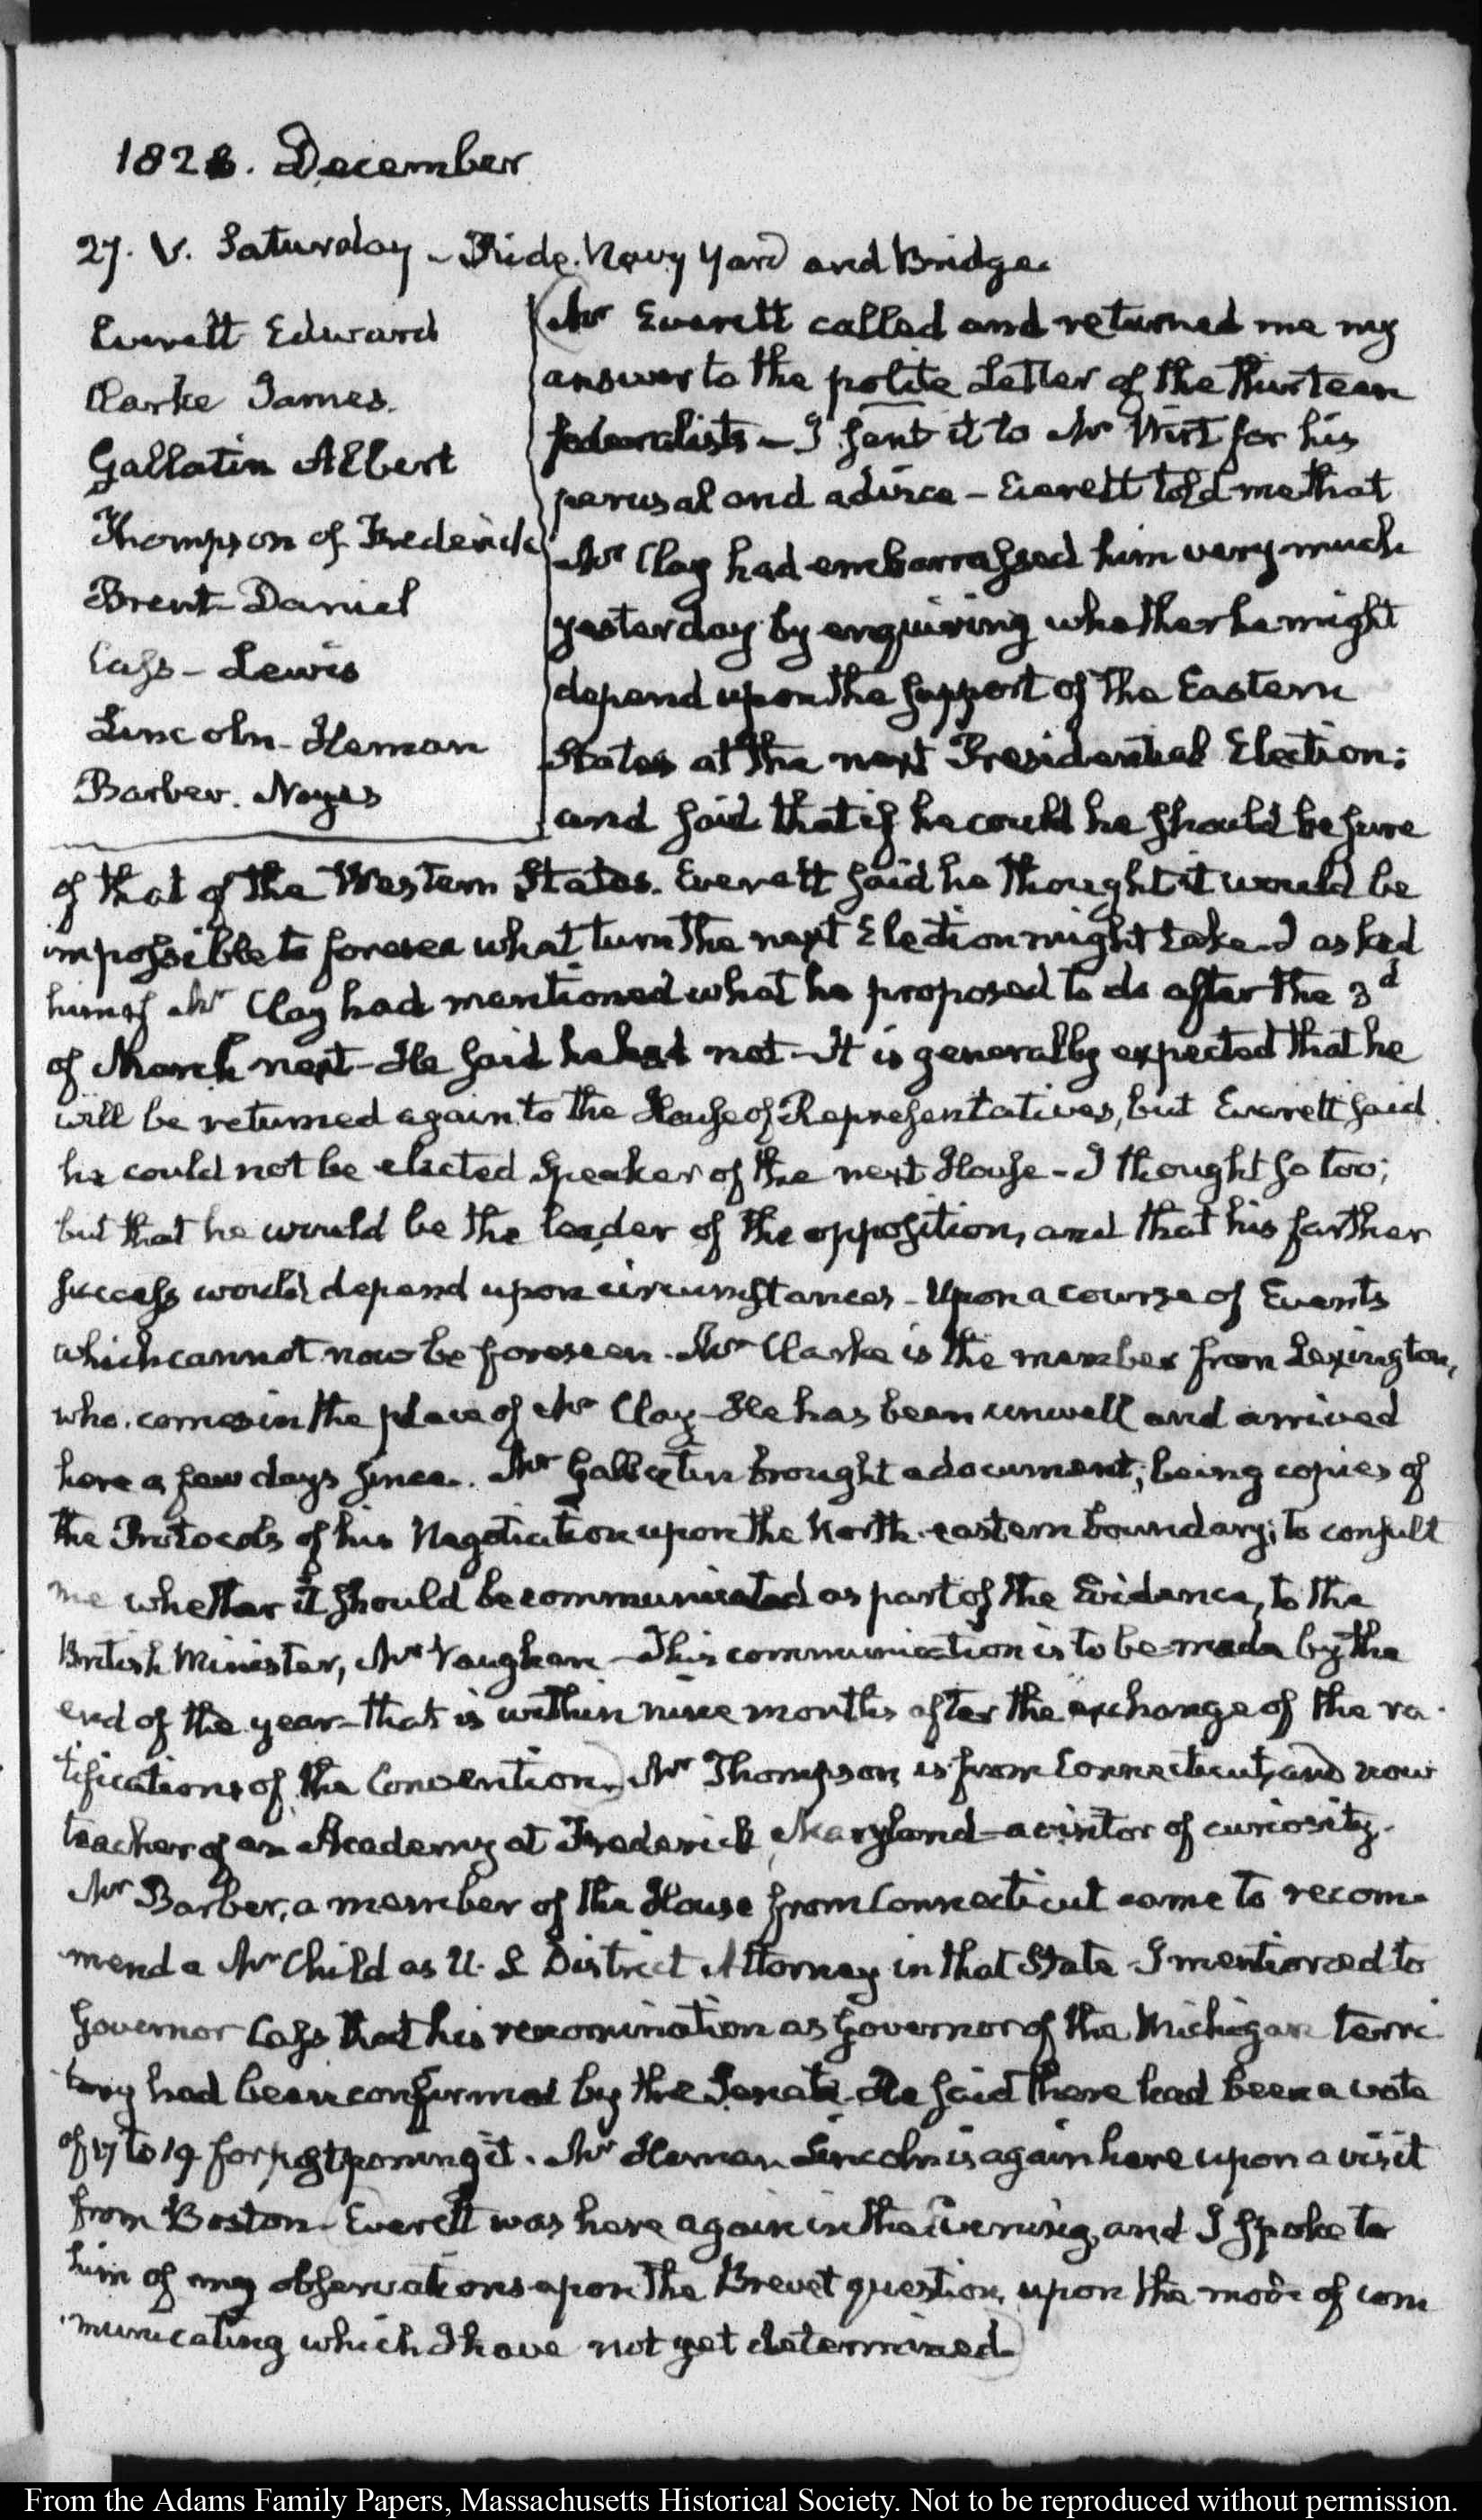 1828. December
27. V. Saturday - Ride. Navy Yard and Bridge.
Everett Edward
Clarke James.
Gallatin Albert
Thompson of Frederick
Brent - Daniel
Cass - Lewis
Lincoln - Heman
Barber. Noyes
Mr Everett called and returned me my
answer to the polite Letter of the thirteen
federalists - I sent it to Mr Wirt for his
perusal and advice - Everett told me that
Mr Clay had embarrassed him very much
yesterday by enquiring whether he might
depend upon the support of the Eastern
States at the next Presidential Election;
and said that if he could he should be sure
of that of the Western States. Everett said he thought it would be
impossible to foresee what turn the next Election might take. I asked
him if Mr Clay had mentioned what he proposed to do after the 3d
of March next - He said he had not - It is generally expected that he
will be returned again to the House of Representatives, but Everett said
he could not be elected Speaker of the next House - I thought so too;
but that he would be the leader of the opposition, and that his farther
success would depend upon circumstances - Upon a course of Events
which cannot now be foreseen. Mr Clarke is the member from Lexington,
who comes in the place of Mr Clay - He has been unwell and arrived
here a few days since. Mr Gallatin brought a document, being copies of
the Protocols of his Negotiation upon the North-eastern boundary; to consult
me whether it should be communicated as part of the Evidence, to the
British Minister, Mr Vaughan - This communication is to be made by the
end of the year - that is within nine months after the exchange of the ra-
tifications of the Convention. Mr Thompson is from Connecticut, and now
teacher of an Academy at Frederick, Maryland - a visitor of curiosity.
Mr Barber, a member of the House from Connecticut came to recom-
mend a Mr Child as U. S. District Attorney in that State - I mentioned to
Governor Cass that his renomination as Governor of the Michigan terri-
tory had been confirmed by the Senate. He said there had been a vote
of 17 to 19 for postponing it. Mr Heman Lincoln is again here upon a visit
from Boston - Everett was here again in the Evening, and I spoke to
him of my observations upon the Brevet question, upon the mode of com
municating which I have not yet determined.
From the Adams Family Papers, Massachusetts Historical Society. Not to be reproduced without permission.